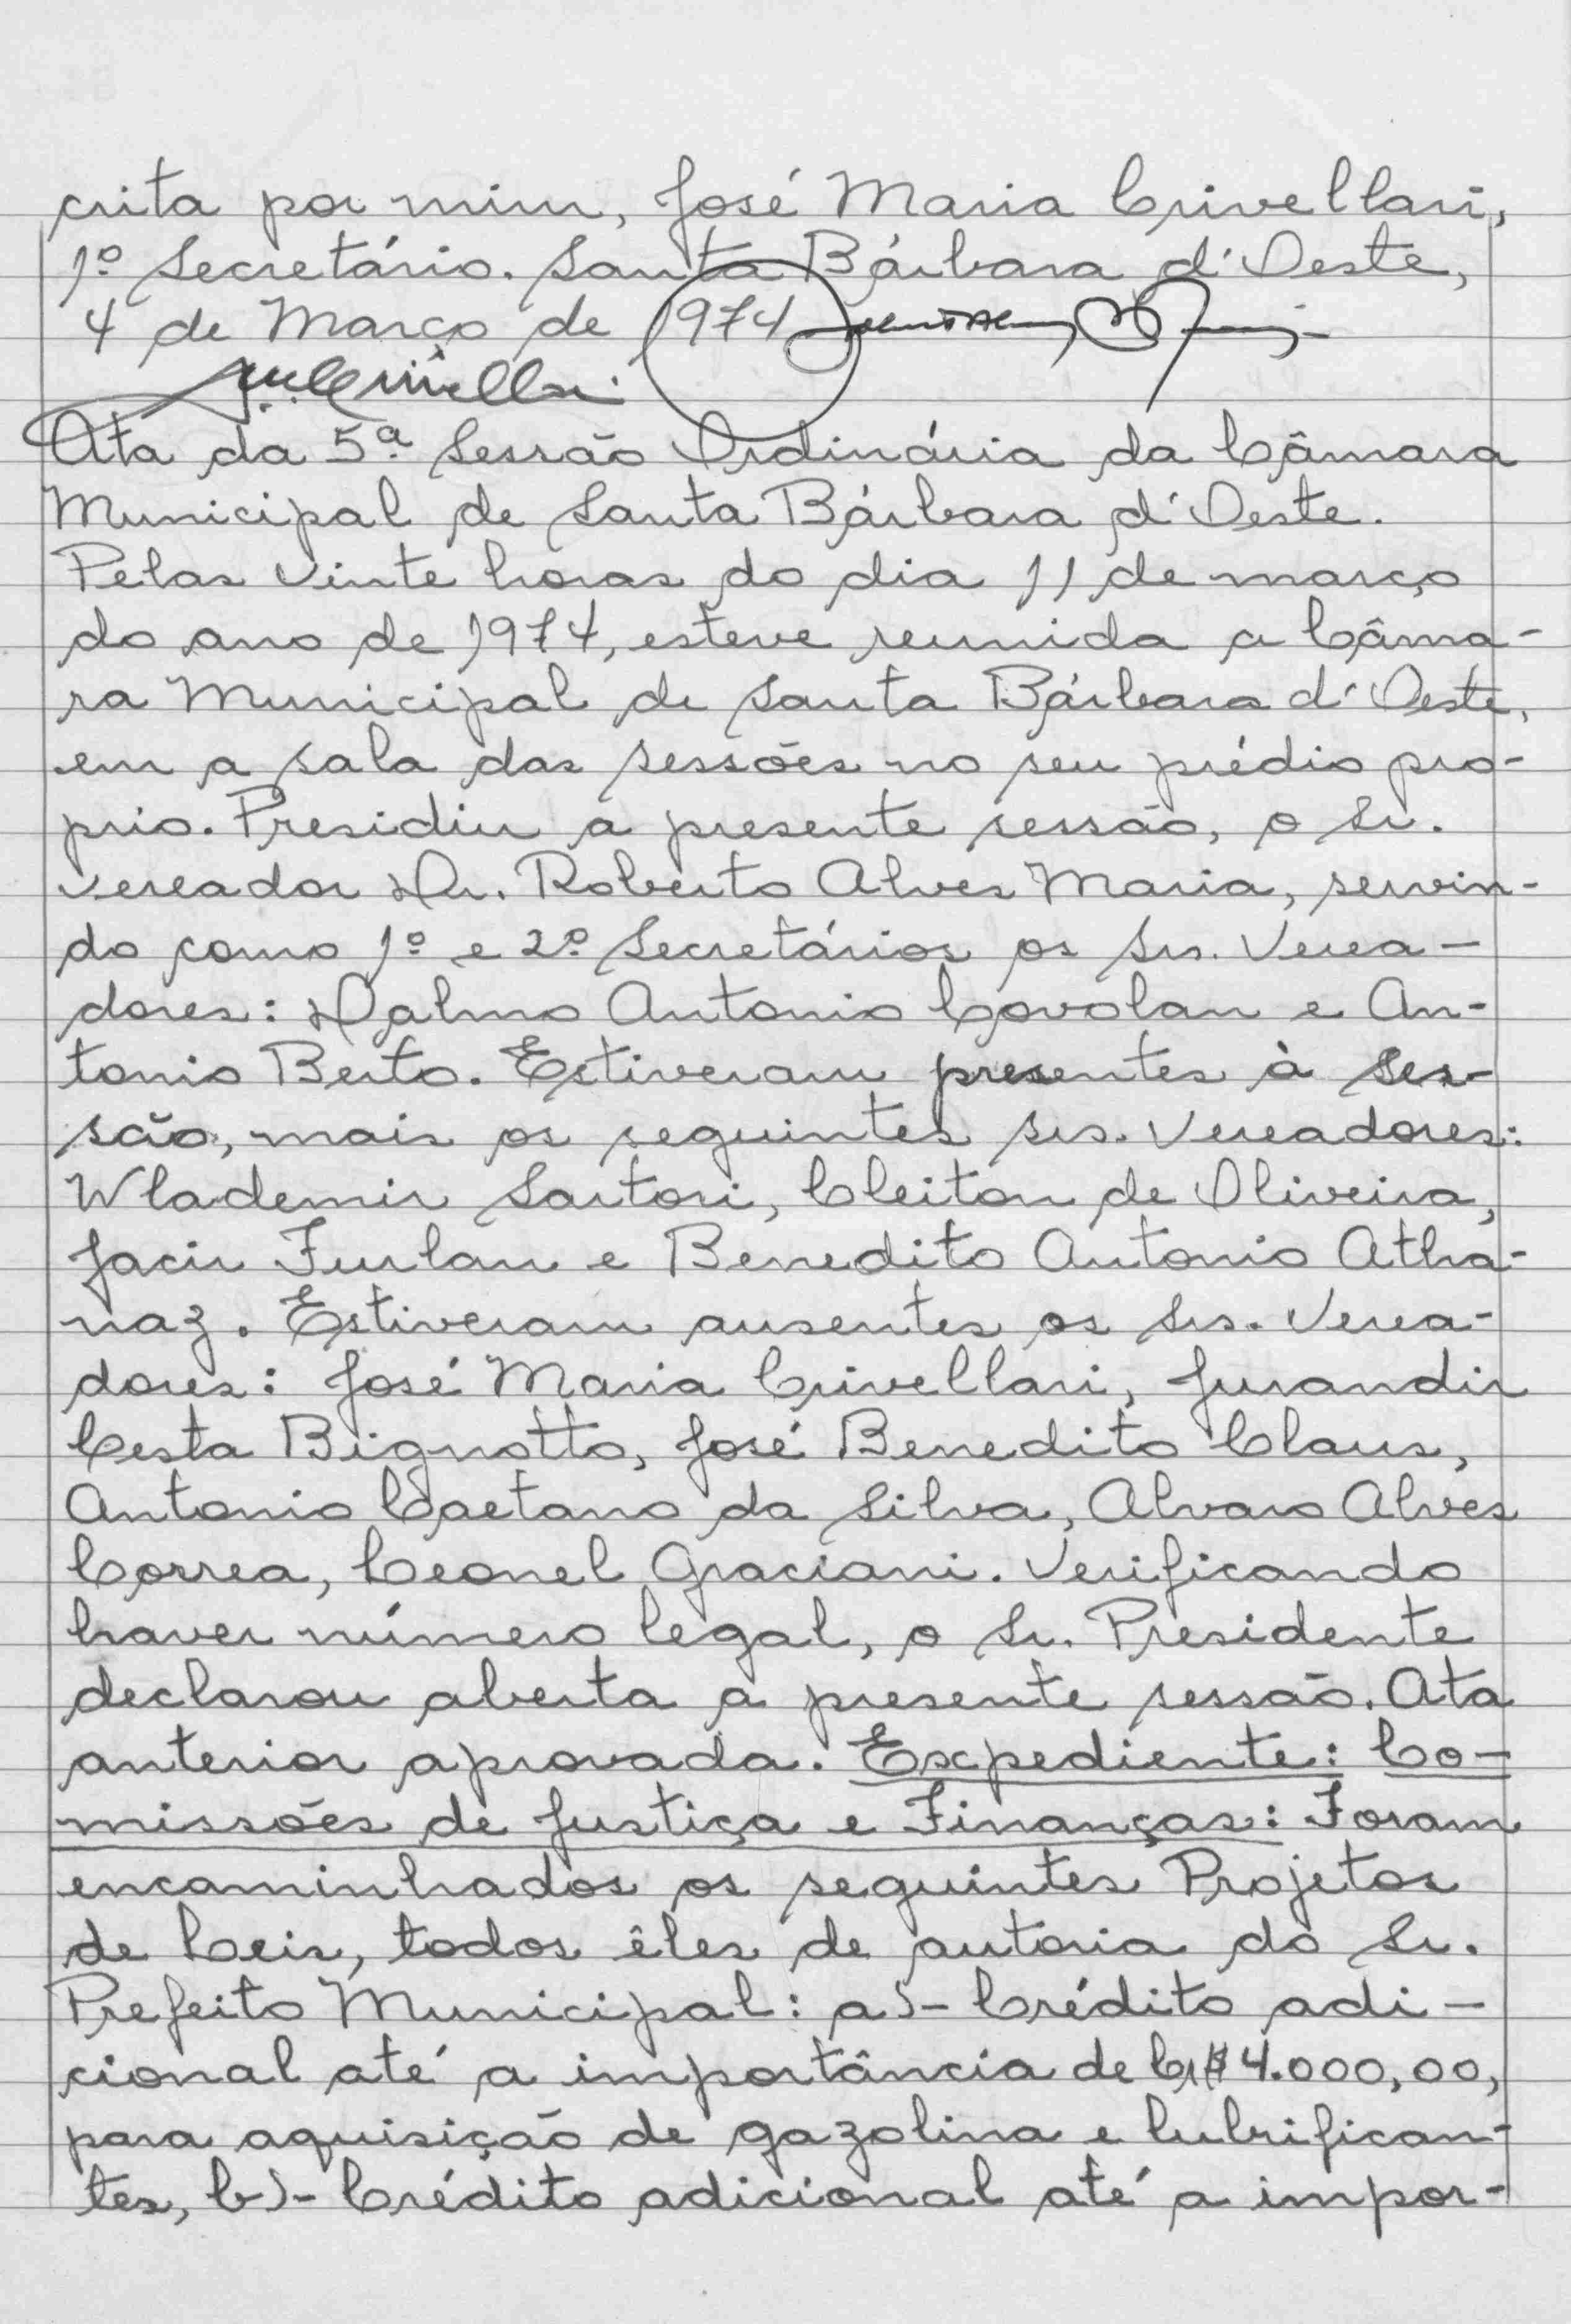 crita por mim, José Maria Crivellari,
1º Secretário. Santa Bárbara d'Oeste,
4 de Março de 1974
Ata da 5ª Sessão Ordinária da Câmara
Municipal de Santa Bárbara d'Oeste.
Pelas vinte horas do dia 11 de março
do ano de 1974, esteve reunida a Câma-
ra Municipal de Santa Bárbara d'Oeste,
em a sala das sessões no seu prédio pro-
prio. Presidiu a presente sessão, o Sr.
vereador Dr. Roberto Alves Maria, servin-
do como 1º e 2º Secretários os Srs. Verea-
dores: Dalmo Antonio Covolan e An-
tonio Berto. Estiveram presentes à Ses-
são, mais os seguintes srs. Vereadores:
Wlademir Sartori, Cleiton de Oliveira,
Jacir Furlan e Benedito Antonio Atha-
naz. Estiveram ausentes os Srs. Verea-
dores: José Maria Crivellari, Jurandir
Cesta Bignotto, José Benedito Claus,
Antonio Caetano da Silva, Alvaro Alves
Correa, Leonel Graciani. Verificando
haver número legal, o Sr. Presidente
declarou aberta a presente sessão. Ata
anterior aprovada. Expediente: Co-
missões de Justiça e Finanças: Foram
encaminhados os seguintes Projetos
de Leis, todos êles de autoria do Sr.
Prefeito Municipal: a)- Crédito adi-
cional até a importância de Cr$ 4.000,00,
para aquisição de gazolina e lubrifican-
tes, b)- Crédito adicional até a impor-